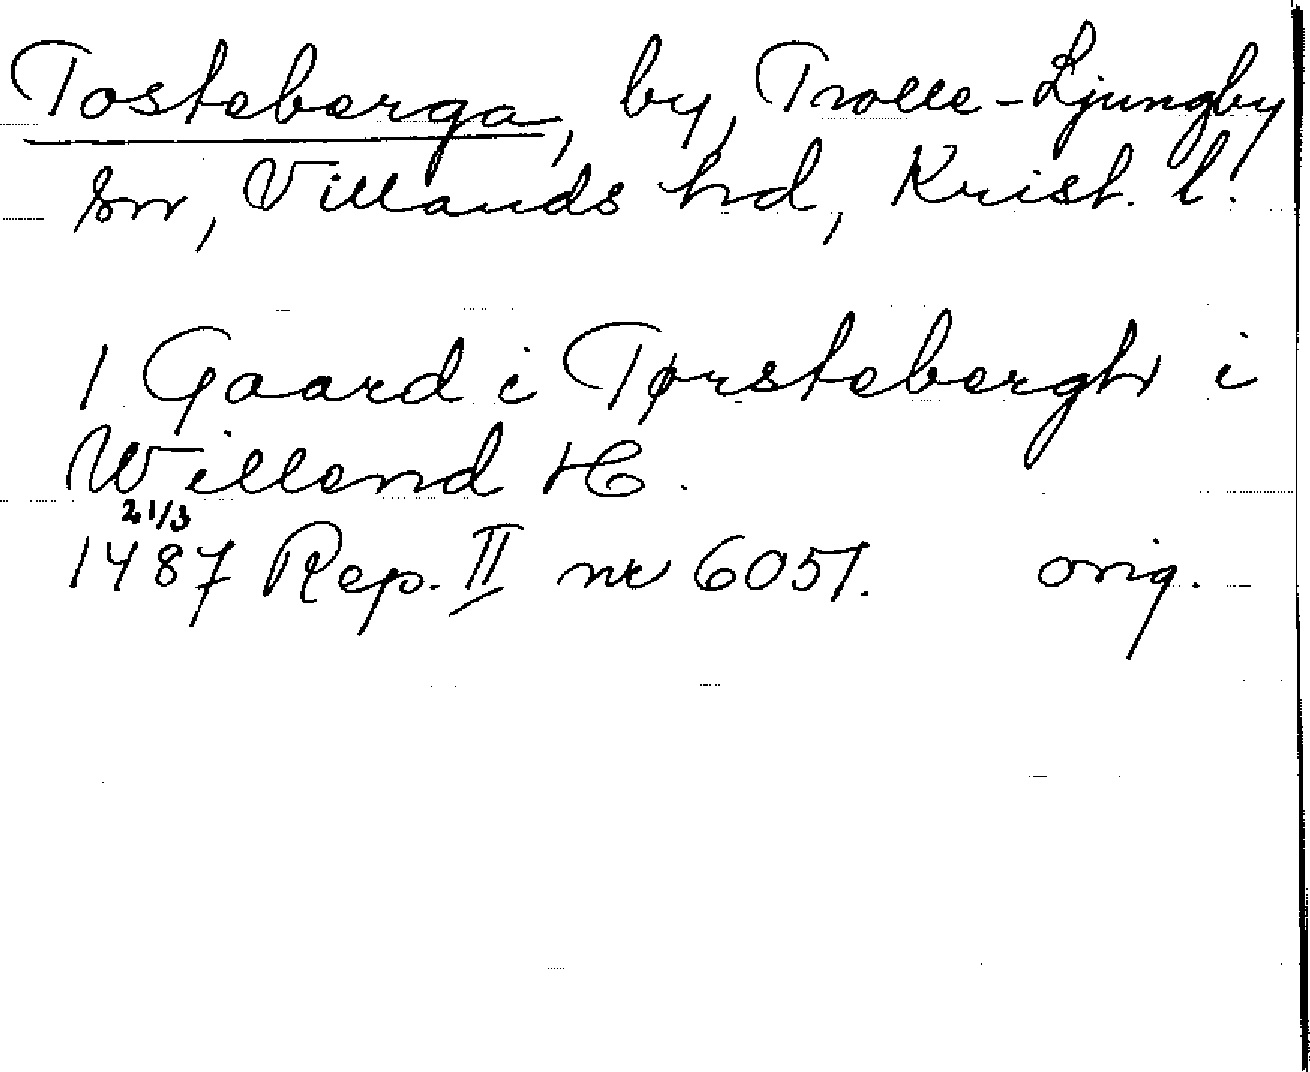 Tosteberga, by, Trolle-Ljungby
sn, Villands hd, Krist. l.
1 Gaard i Tørstebergh i
Willend H.
21/3
1487 Rep. II nr 6051. orig.